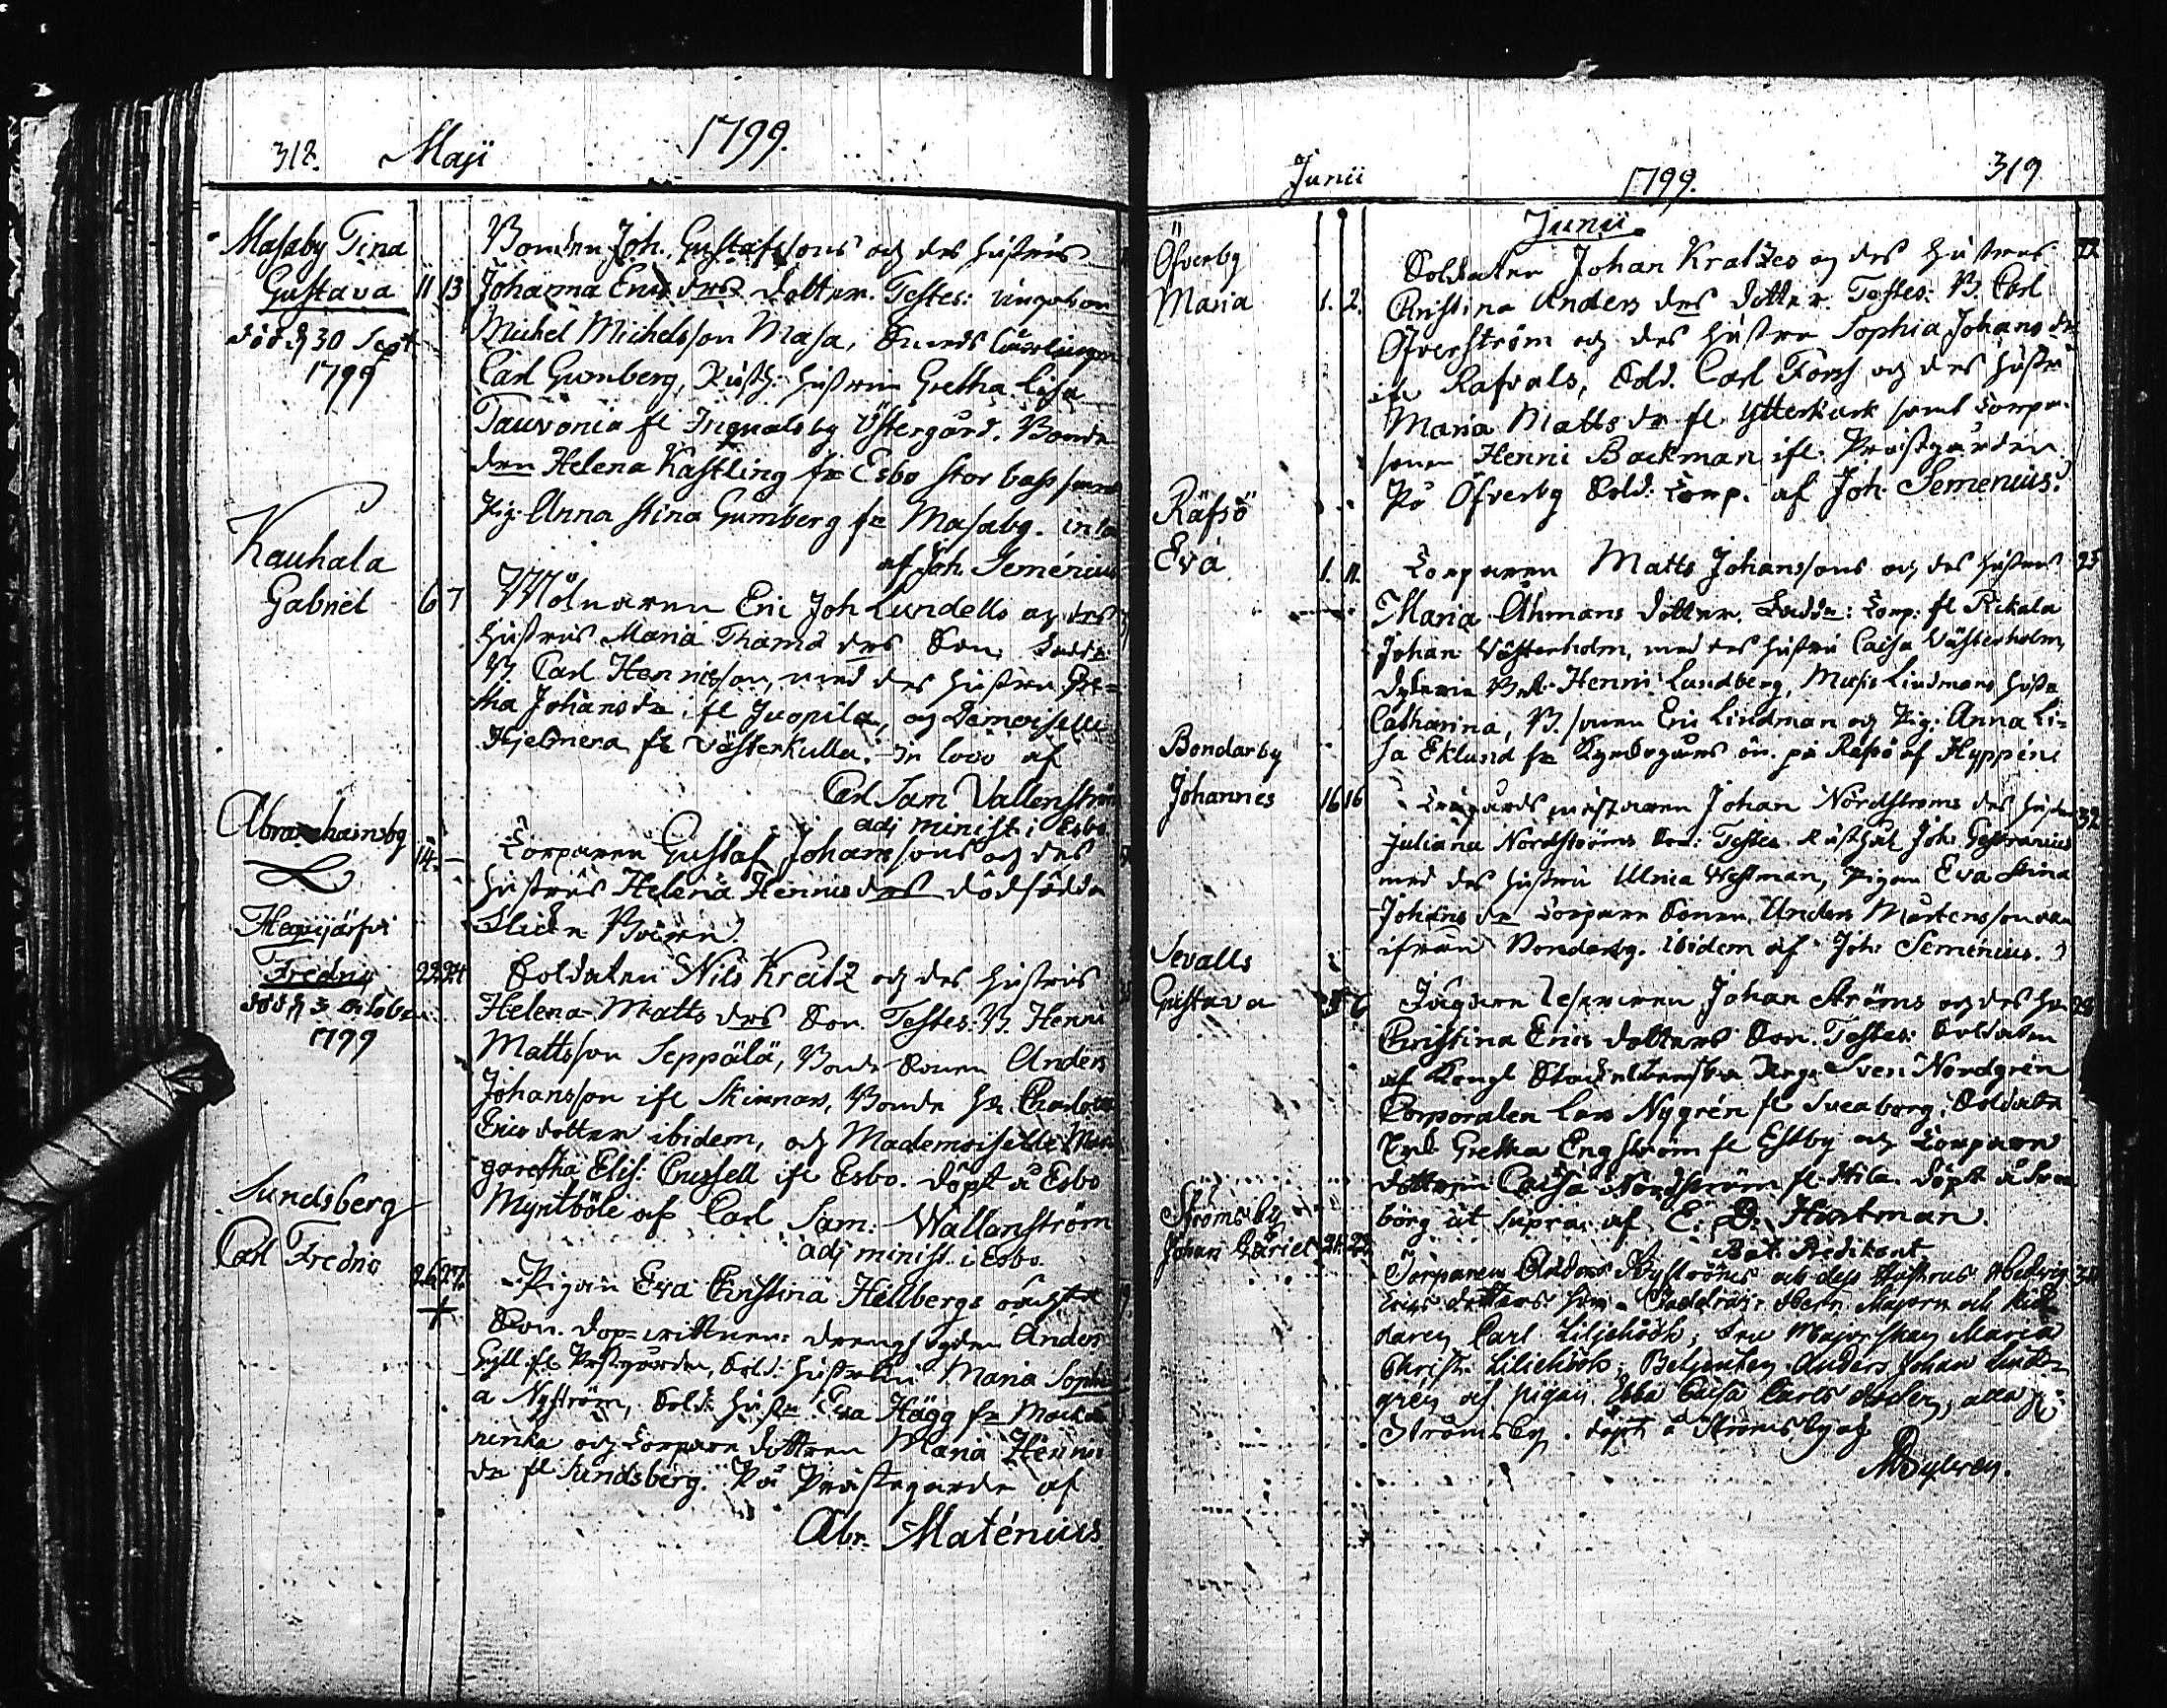 312. Maji 1799.
Masaby Tina
Gustava 11 13
död d 30 Sept
1799
Bonden Joh. Gustafssons och des hustrus
Johanna Erics drs dotter. Testes: ungkarn
Michel Michelsson Masa,
Carl Gumberg, Rusth: hustrun Gretha Lisa
Tauvonia fr Ingvalsby Östergård. Bonde
den Helena Kastling fr Esbo stor bass samt
Pig. Anna Stina Gumberg fr Masaby. in lo
af Joh. Semenius
Kauhala
Gabriel 6 7
Mölnaren Eric Joh Lundells och des
hustrus Maria Thoms drs Son. Fadd:
B. Carl Henricsson, med des hustru Gre=
tha Johansdr ifr Juopila, och Demoiselle
Hjelmera fr Västerkulla. in loco af
Carl Sam Vallenström
adj minist: i Esbo
Abrahamsby 14. –
Torparen Gustaf Johanssons och des
hustrus Helena Henricsdrs dödfödda
Flicke Barn.
Hepijärfvi
Fredric 22 24
död d 3 october
1799
Soldaten Nils Kratz och des hustrus
Helena Matts drs Son. Testes: B. Henric
Mattsson Seppälä, Bonde Sonen Anders
Johansson ifr Skinnars, Bonde H. Charlotta
Erics dotter ibidem, och Mademoiselle Mar
garetha Elis: Crusell ifr Esbo. döpt i Esbo
Myntböle af Carl Sam: Wallenström
adj minist. i Esbo.
Sundsberg
Carl Fredric 26 27.
+
Pigan Eva Christina Hellbergs oächta
Son. Dop=vittnen: drengs Anders
Gyll fr Prästgården, Sold: hustrun Maria Sophi
a Nyström, Sold: hustr Eva Hägg fr
och Torpare dottren Maria Henrics
dr fr Sundsberg. På Prästegården af
Abr. Maténius

Junii 1799. 319
Junii.
Öfverby
Maria 1. 2. 22
Soldaten Johan Kratzes och des hustrus
Christina Anders drs dotter. Testes: B. Carl
Öfverström och des hustru Sophia Johans dr
ifr Rafvals, Sold. Carl Forss och des hustru
Maria Matts dr fr Ytterkurk samt Torpare
sonen Henric Backman ifr Prästgården.
På Öfverby Sold: Torp. af Joh. Semenius.
Räfsö
Eva 1. 11. 25
Torparen Matts Johanssons och des hustrus
Maria Åhmans dotter. Faddr: Torp. fr Pickala
Johan Västerholm, med des hustru Caisa Västerholm,
Henric Lundberg, Lindmans hustru
Catharina, B. sonen Eric Lindman och Pig: Anna Li=
sa Eklund fr på Rafsö af Hyppine
Bondarby
Johannes 16 16 32
Trägårds mästaren Johan Nordströms des hustru
Juliana Nordströms Son: Testes Rusthål Joh: Gestranius
med des hustru Ulrica Westman, Pigan Eva Stina
Johans dr Torpare Sonen Anders Mårtensson
ifrån Bondarby. ibidem af Joh: Semenius.
Sevalls
Gustava 6 29
Jägare Johan Ströms och des hu
Christina Erics dotters Son. Testes: Soldaten
af Kongl Sven Nordgrén
Corporalen Lars Nygrén fr Sveaborg, Soldate
Gretha Engström fr Estby och Torpare
dottren Caisa Nordström fr Hila. döpt å Svea
borg ut supra, af E. D. Hartman.
Bat. Predikant
Strömsby
Johan Gabriel 21. 22.
Torparen Anders Nyströms och dess Hustrus Hedvig
Erics dotters Son. Faddrar: Herr Majorn och Rid
daren Carl Liljehöök, Fru Majorskan Maria
Christ: Liljehöök, Betjenten Anders Johan Lind
gren och pigan Ebba Caisa Carls dotter, alla fr
Strömsby. döpt å Strömsby af